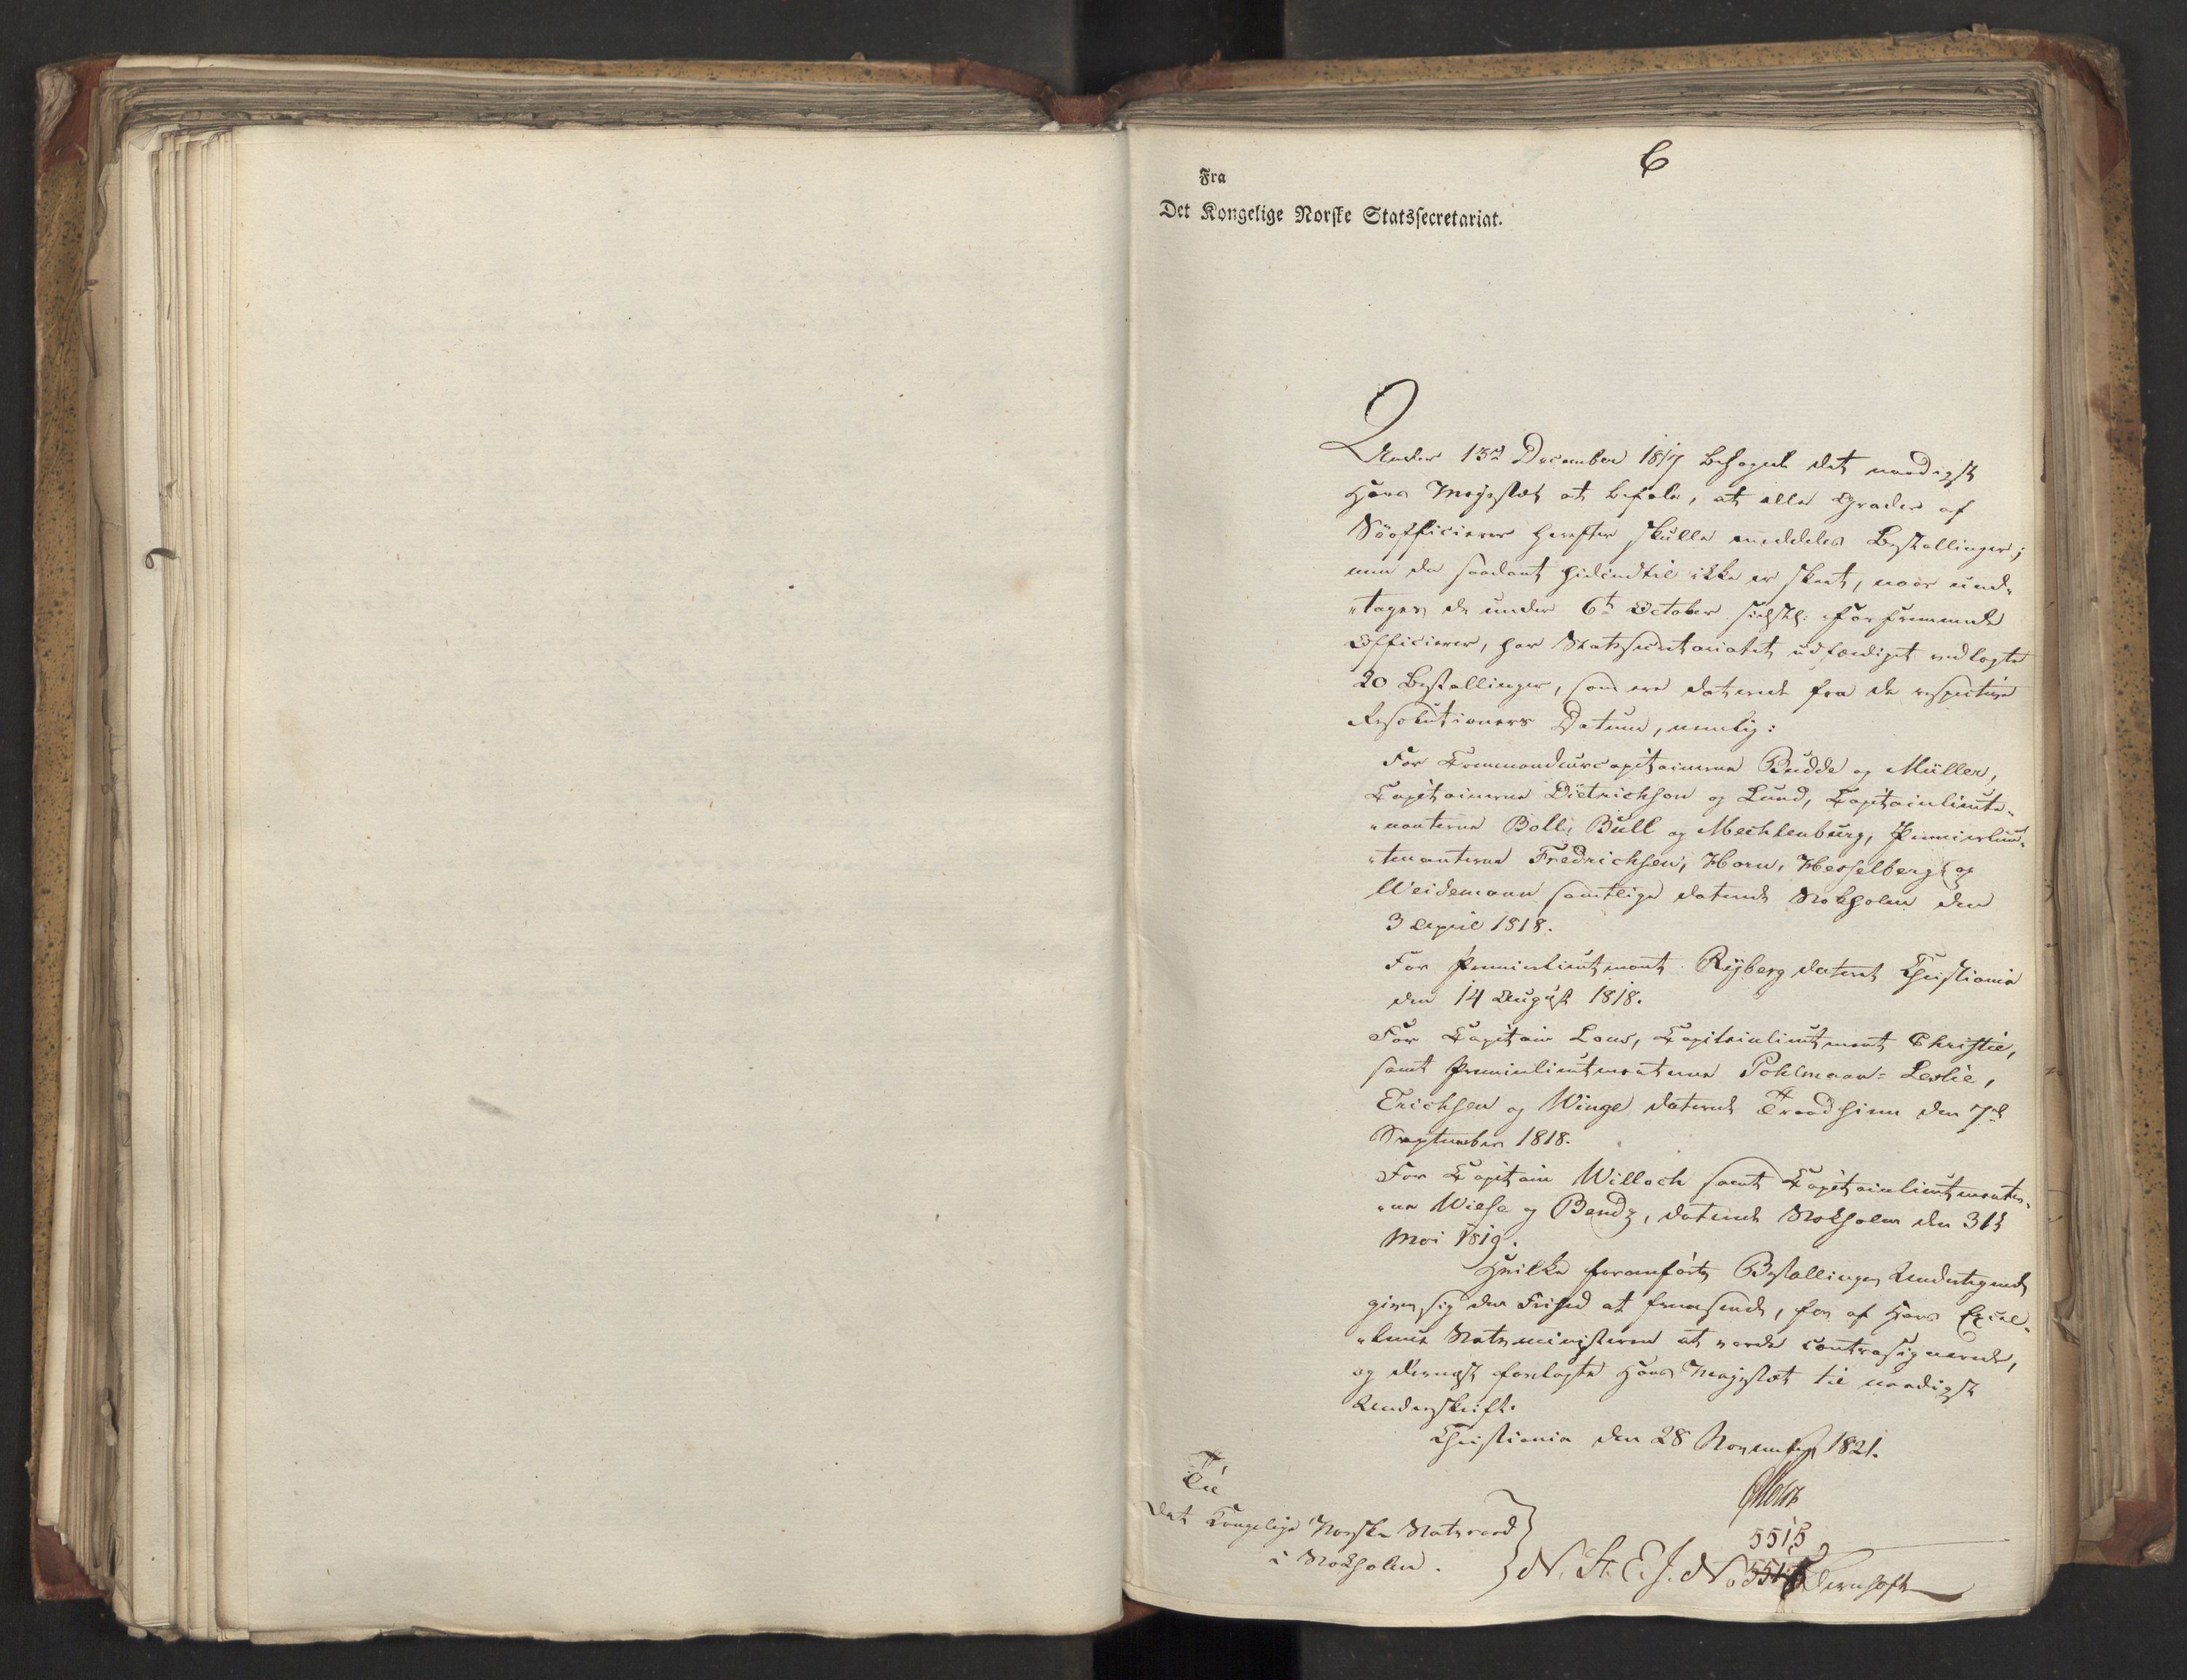 6
Fra
Det Kongelige Norske Statssecretariat.
Under 13de December 1817 behagede det naadigst
Hans Majestæt at befale, at alle Grader af
Söofficierer herefter skulle meddeles Bestallinger;
men da saadant hidindtil ikke er skeet, naar und-
„tages de under 6te October sidstl: forfremmede
Officierer, har Statssecretariatet udfærdiget vedlagte
20 Bestallinger, som ere daterede fra de respective
Resolutioners Datum, nemlig:
For Commandeurcapitainerne Budde og Müller,
Capitainerne Dietrichson og Lund, Capitainlieute-
„nanterne Bolli, Bull og Mechlenburg, Premierlieu-
„tenanterne Fredrichsen, Horn, Hesselberg og
Weidemann samtlige daterede Stokholm den
3 April 1818.
For Premierlieutenant Ryberg dateret Christiania
den 14 August 1818.
For Capitain Lous, Capitainlieutenant Christie,
samt Premierlieutenanterne Pohlmann- Leslie,
Erichsen og Winge daterede Trondhiem den 7de
September 1818.
For Capitain Willoch samt Capitainlieutenanter-
„ne Wiese og Bendz, daterede Stokholm den 31te
Mai 1819.
Hvilke foranførte Bestallinger Undertegnede
giver sig den Frihed at fremsende, for af Hans Excel-
„lence Statsministeren at vorde contrasignerede,
og dernæst forelagte Hans Majestæt til naadigst
Underskrift.
Christiania den 28 November 1821.
Holst
Til
Det Kongelige Norske Statsraad
i Stokholm.
5515
N. St. E. J. No